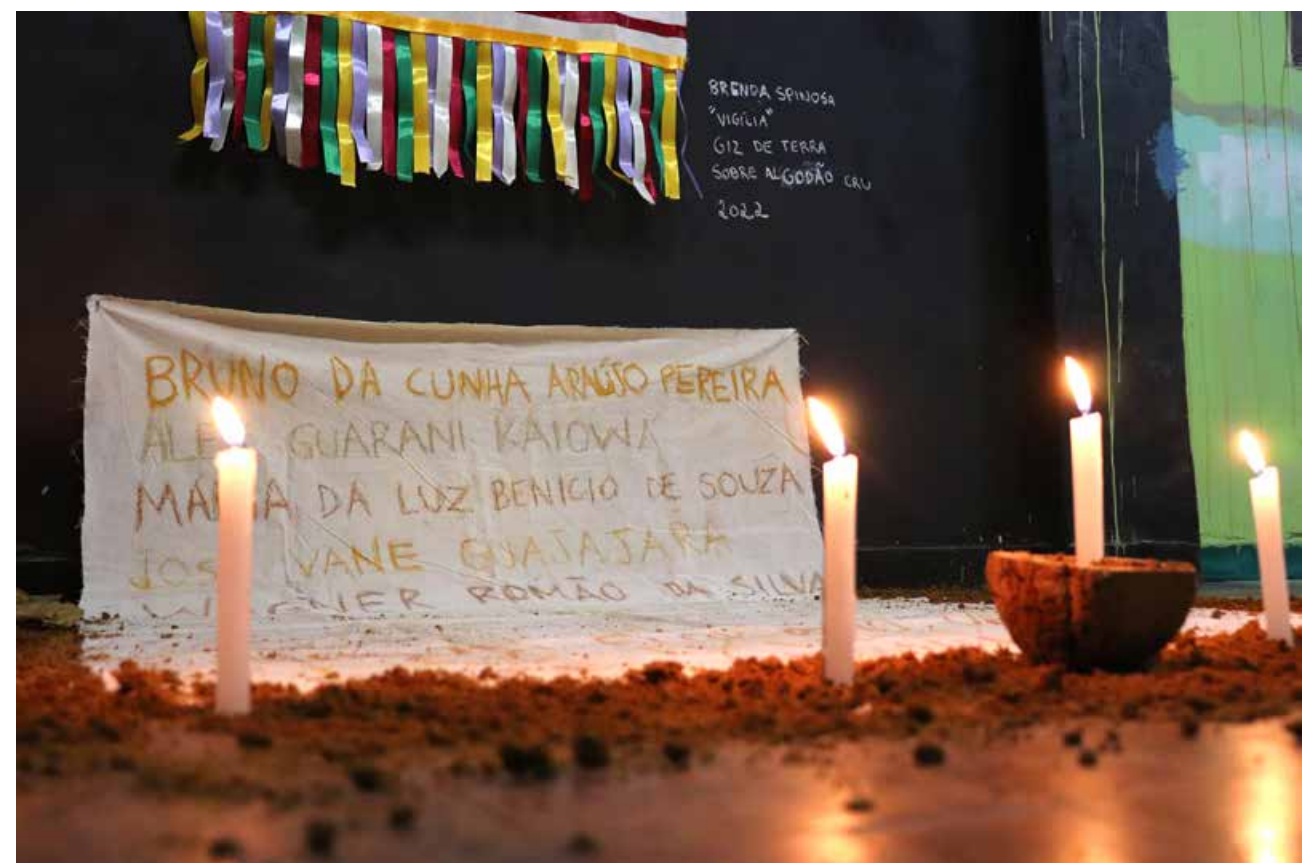 BRENDA SPINOSA
"VIGÍLIA"
GIZ DE TERRA
SOBRE ALGODÃO CRU
2022
BRUNO DA CUNHA ARAÚJO PEREIRA
GUARANI KAIOWÁ
MARIA DA LUZ BENICIO DE SOUZA
VANE GUAJAJARA
ROMÃO DA SILVA